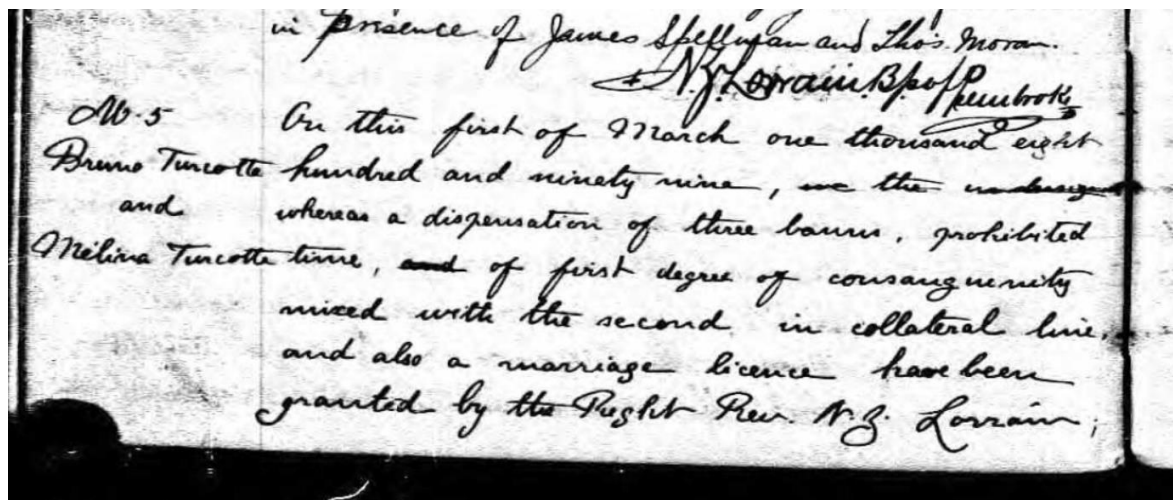 in presence of James Spellman and Thos. Moran.
+ N. Z. Lorrain. Bp of Pembroke
M. 5
Bruno Turcotte
and
Mélina Turcotte
On this first of March one thousand eight
hundred and ninety nine, we the undersigned
whereas a dispensation of three banns, prohibited
time, and of first degree of consanguinity
mixed with the second in collateral line,
and also a marriage licence have been
granted by the Right Rev. N. Z. Lorrain;